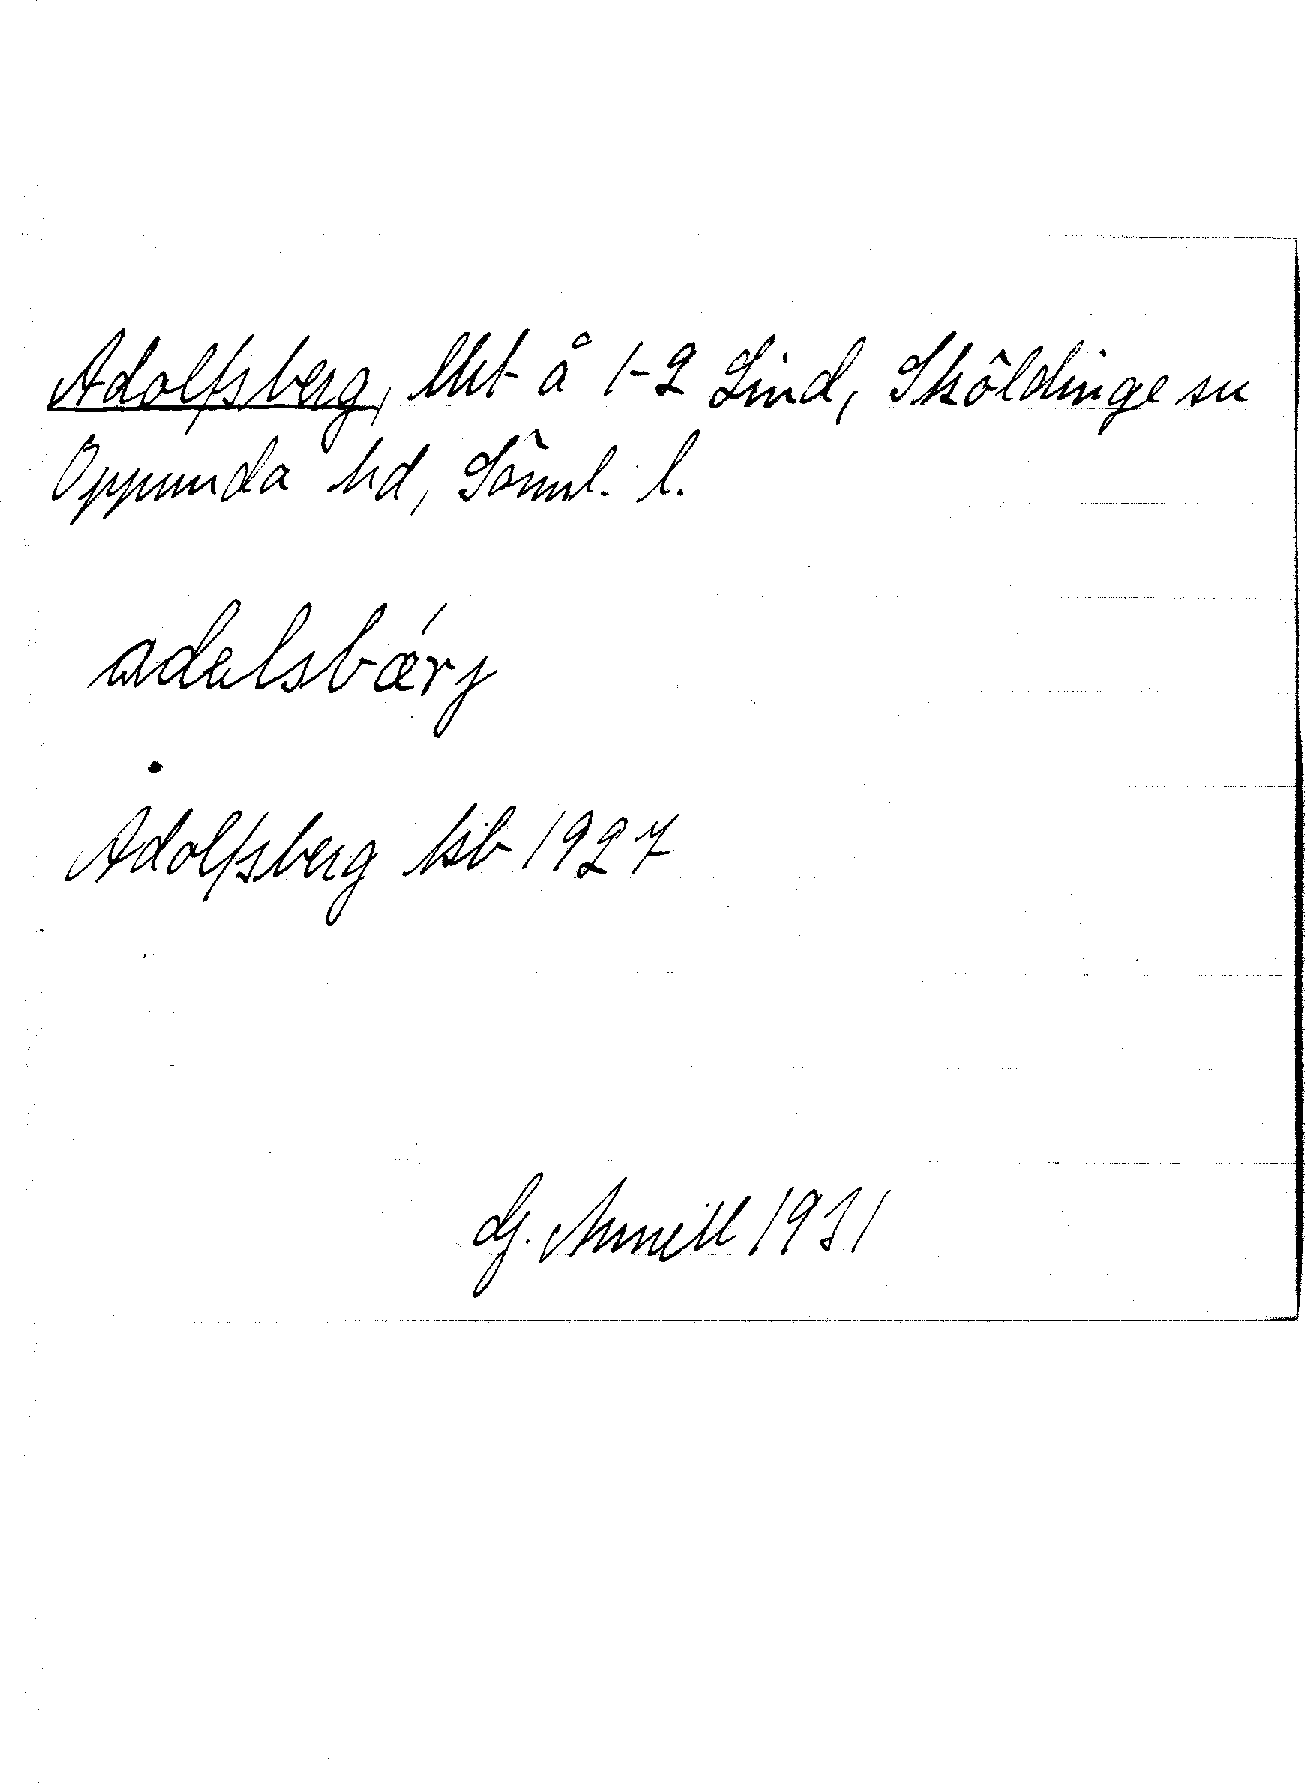 Adolfsberg, lht å 1-2 Lind, Sköldinge sn
Oppunda hd, Sörml. l.
adalsbǽrj
Adolfsberg ksb 1927
G. Annell 1931